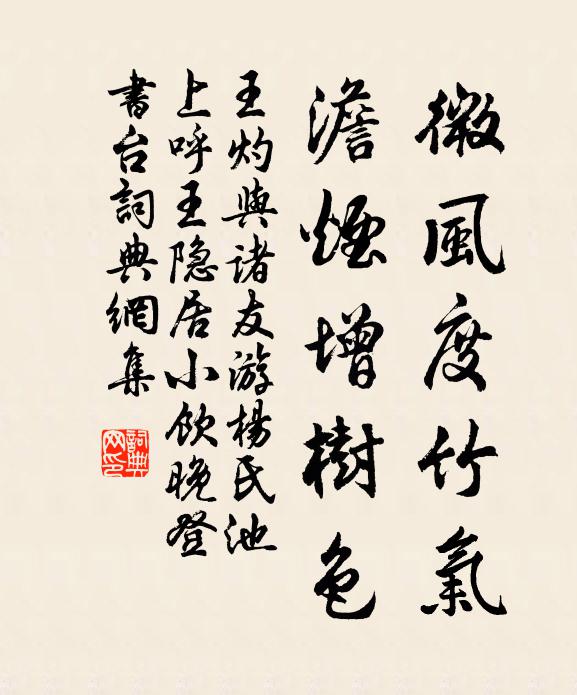 微風度竹氣
澹煙增樹色
王灼與諸友游楊氏池
上呼王隐居小飲晚登
書台詞典網集
詞典網印